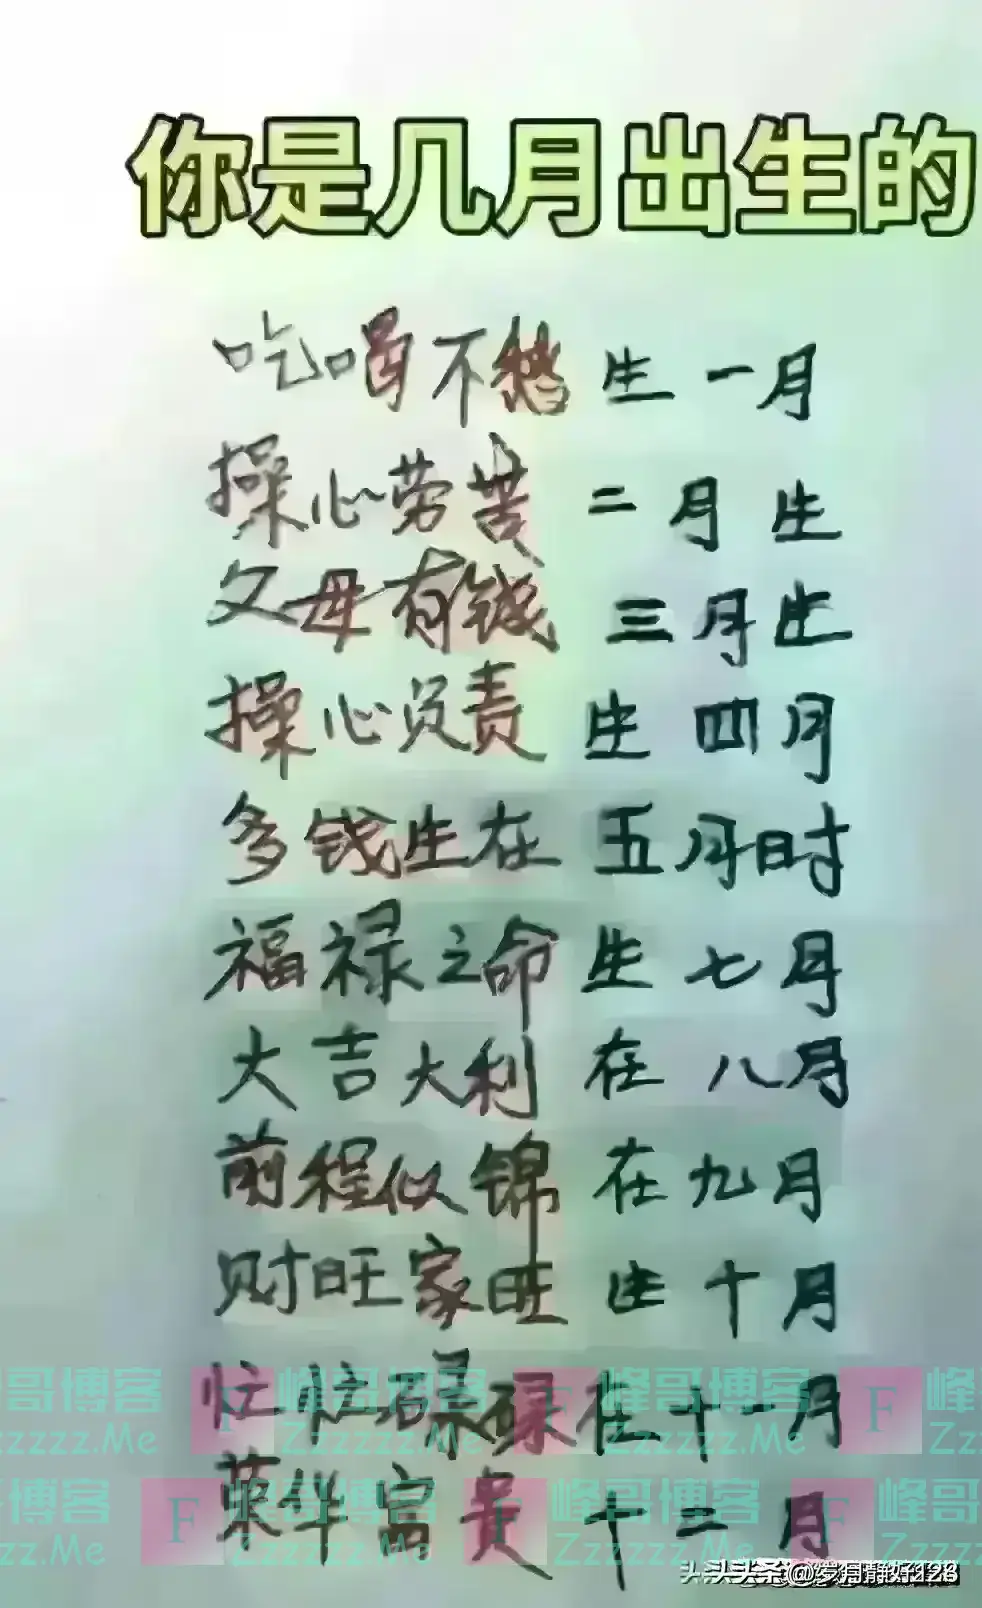 你是几月出生的
吃喝不愁生一月
操心劳苦二月生
父母有钱三月生
操心负责生四月
多钱生在五月时
福禄之命生七月
大吉大利在八月
前程似锦在九月
财旺家旺生十月
忙忙碌碌在十一月
荣华富贵十二月
峰哥博客 F 峰哥博客 F 峰哥博客 F 峰哥
Zzzzzz.Me Zzzzzz.Me Zzzzzz.Me Zz
哥博客 F 峰哥博客 F 峰哥博客 F 峰哥博客
zz.Me Zzzzzz.Me Zzzzzz.Me Zzzzzz.Me